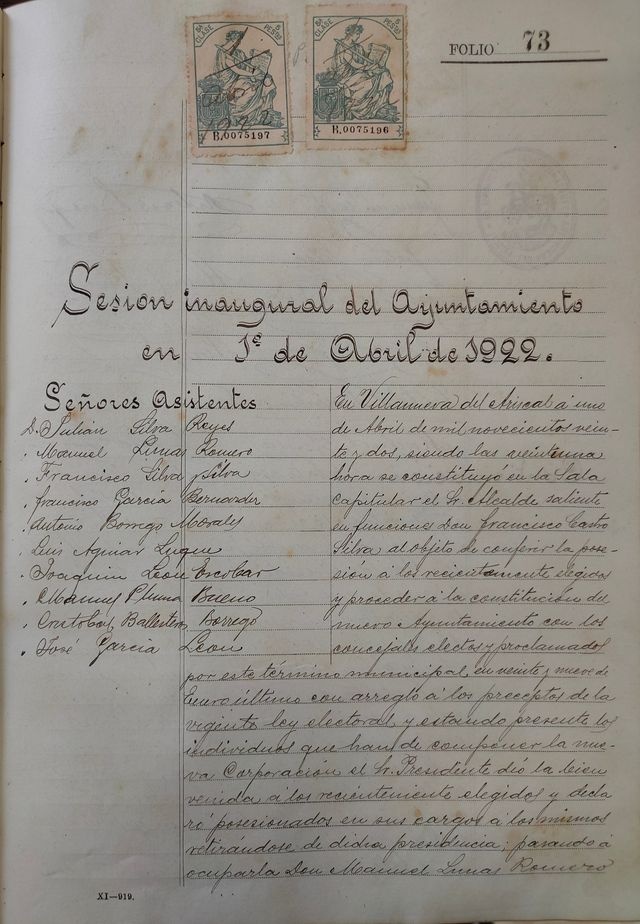 8ª CLASE 5 PESETAS
8ª CLASE 5 PESETAS
B.0075197
B.0075196
FOLIO 73
Sesion inaugural del Ayuntamiento
en 1º de Abril de 1922.
Señores Asistentes
D. Julian Silva Reyes
. Manuel Limas Romero
. Francisco Silva y Silva
. Francisco Garcia Bernarder
. Antonio Borrego Morales
. Luis Aguiar Luque
. Joaquin Leon Escobar
. Manuel Bueno
. Cristobal Ballesteros Borrego
. Jose Garcia Leon
En Villanueva del Ariscal á uno
de Abril de mil novecientos vein-
te y dos, siendo las veintiuna
hora se constituyó en la Sala
capitular el Sr. Alcalde saliente
en funciones Don Francisco Castro
Silva al objeto de conferir la pose-
sión á los recientemente elegidos
y proceder á la constitución del
nuevo Ayuntamiento con los
concejales electos y proclamados
por este término municipal en veinte y nueve de
Enero último con arreglo á los preceptos de la
vigente ley electoral, y estando presente los
individuos que han de componer la nue-
va Corporación el Sr. Presidente dió la bien
venida á los recienteniente elegidos y decla
ró posesionados en sus cargos á los mismos
retirándose de dicha presidencia; pasando á
ocuparla Don Manuel Limas Romero
XI—919.